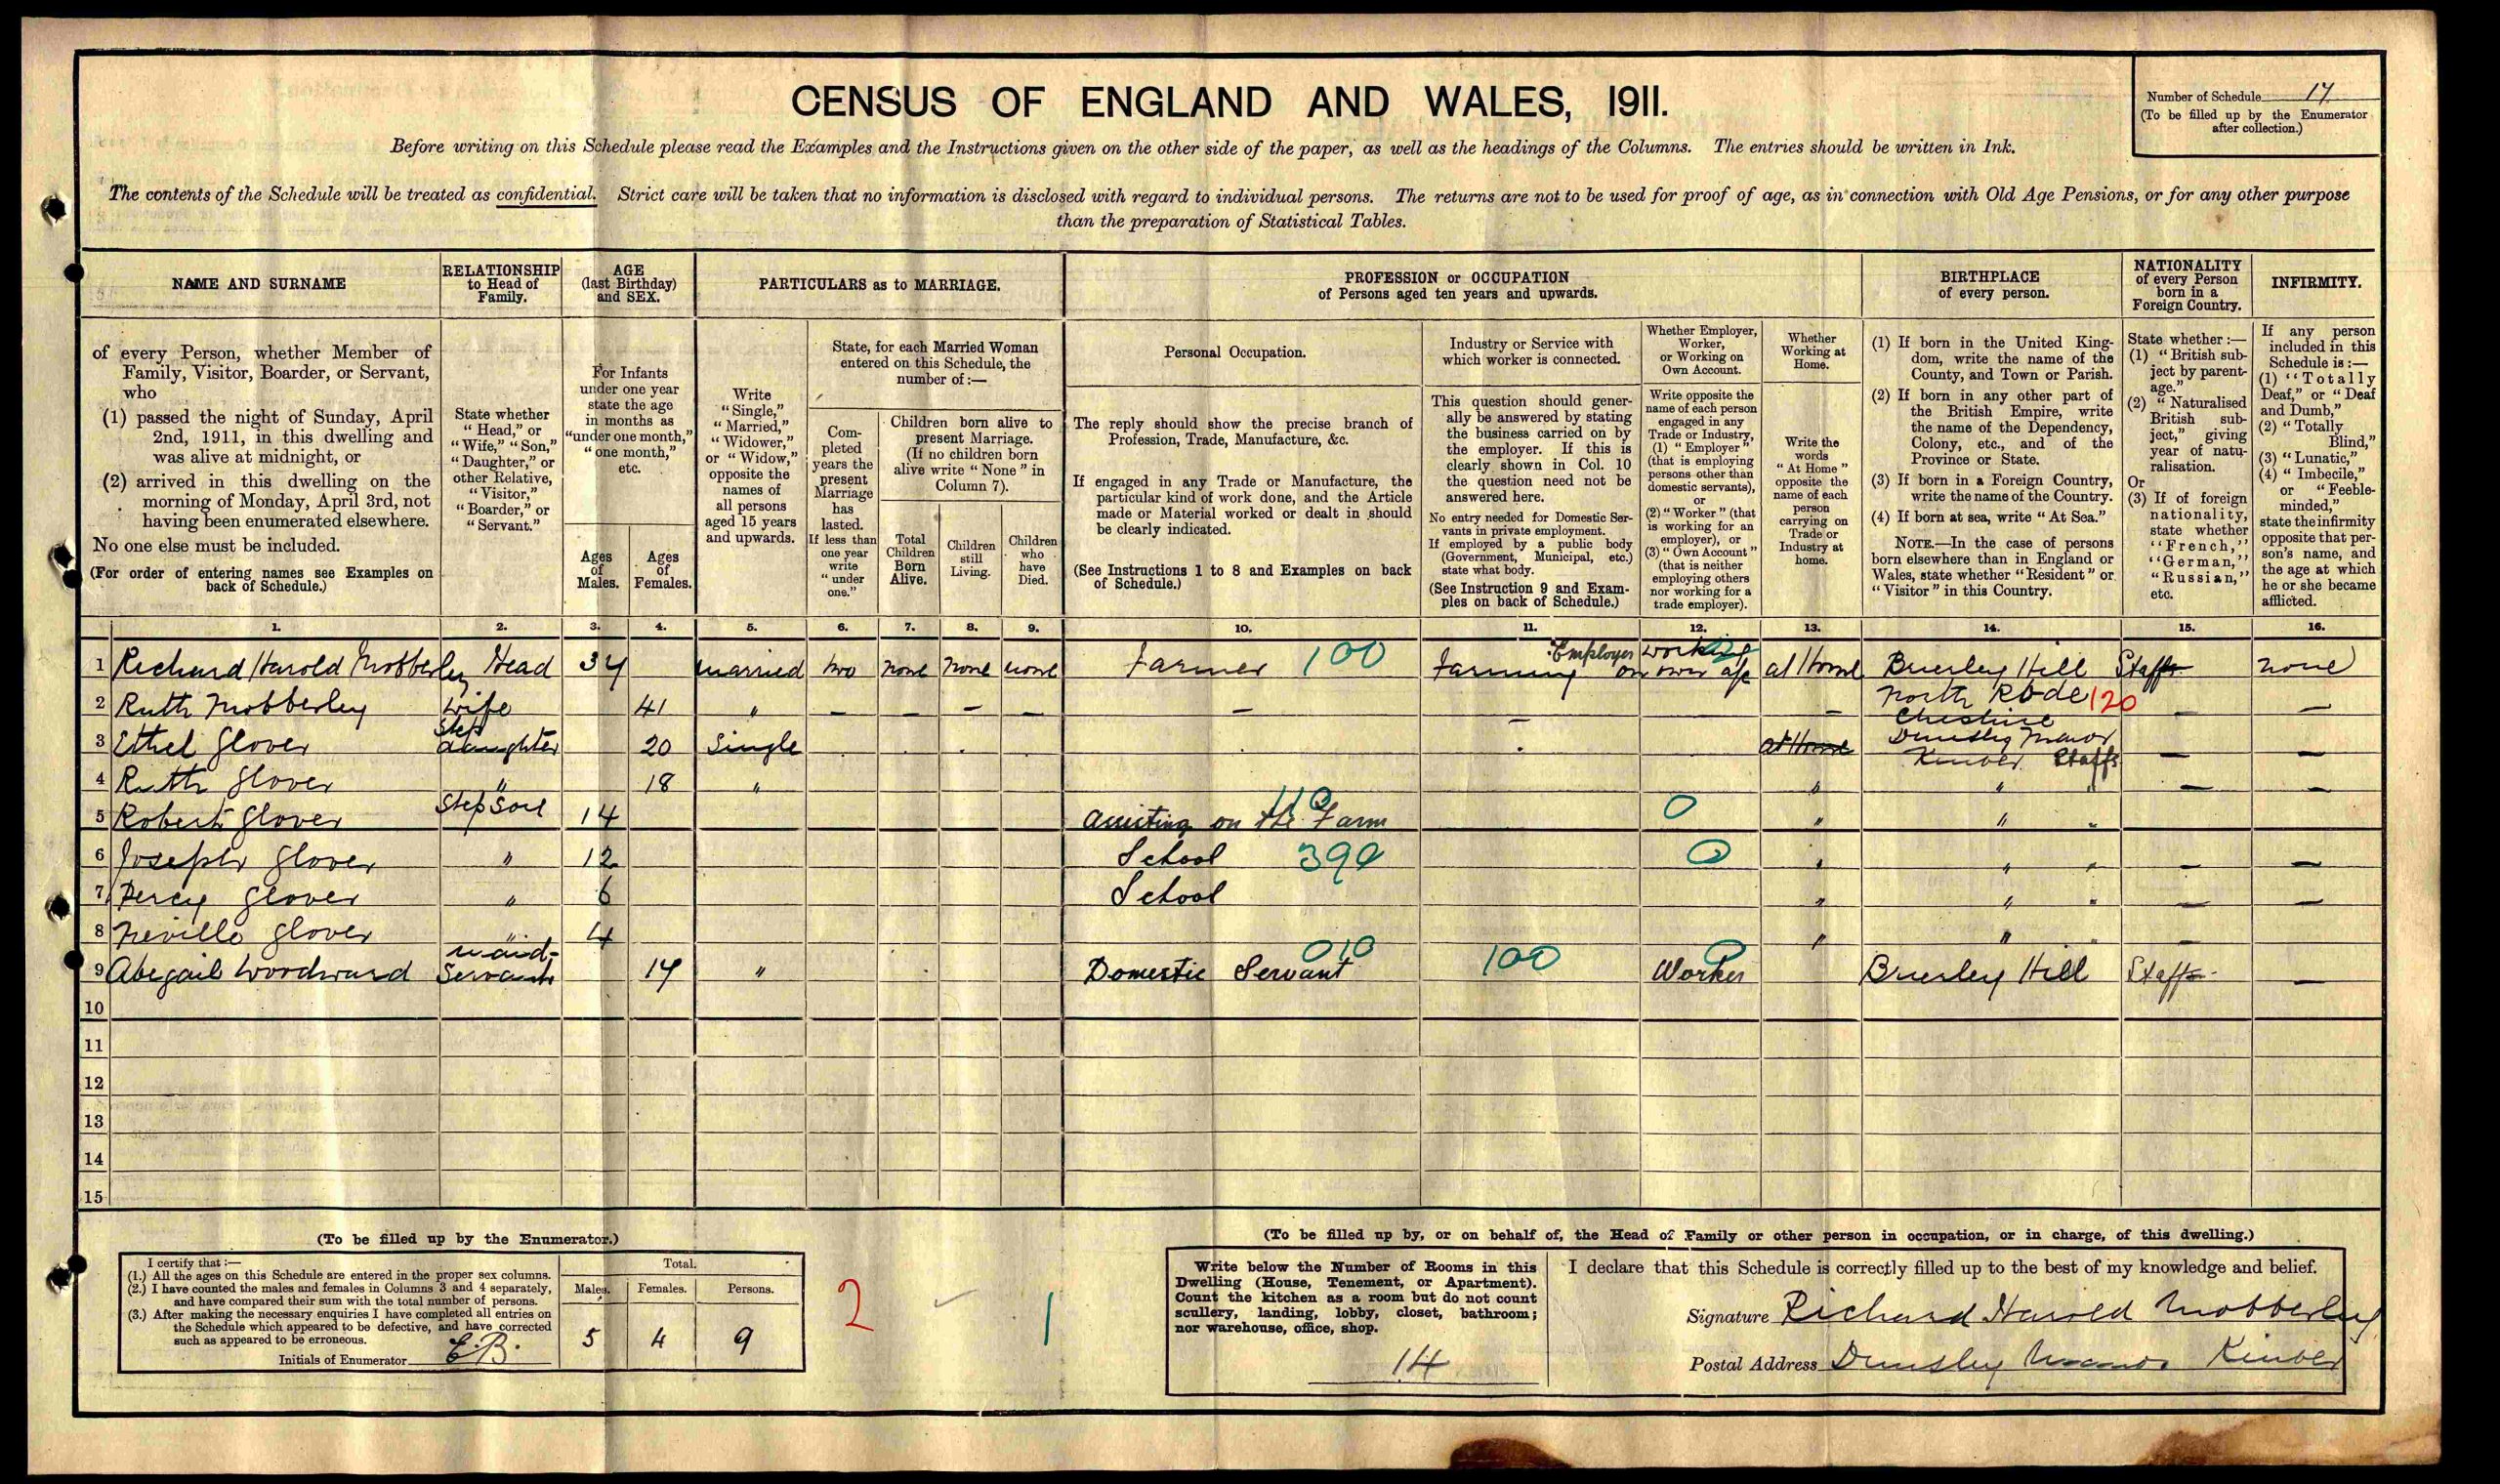 CENSUS OF ENGLAND AND WALES, 1911.
Number of Schedule 17
(To be filled up by the Enumerator
after collection.)
Before writing on this Schedule please read the Examples and the Instructions given on the other side of the paper, as well as the headings of the Columns. The entries should be written in Ink.
The contents of the Schedule will be treated as confidential. Strict care will be taken that no information is disclosed with regard to individual persons. The returns are not to be used for proof of age, as in connection with Old Age Pensions, or for any other purpose
than the preparation of Statistical Tables.
NAME AND SURNAME
of every Person, whether Member of
Family, Visitor, Boarder, or Servant,
who
(1) passed the night of Sunday, April
2nd, 1911, in this dwelling and
was alive at midnight, or
(2) arrived in this dwelling on the
morning of Monday, April 3rd, not
having been enumerated elsewhere.
No one else must be included.
(For order of entering names see Examples on
back of Schedule.)
RELATIONSHIP
to Head of
Family.
State whether
"Head," or
"Wife," "Son,"
"Daughter," or
other Relative,
"Visitor,"
"Boarder," or
"Servant."
AGE
(last Birthday)
and SEX.
For Infants
under one year
state the age
in months as
"under one month,"
"one month,"
etc.
Ages
of
Males.
Ages
of
Females.
PARTICULARS as to MARRIAGE.
Write
"Single,"
"Married,"
"Widower,"
or "Widow,"
opposite the
names of
all persons
aged 15 years
and upwards.
State, for each Married Woman
entered on this Schedule, the
number of :—
Com-
pleted
years the
present
Marriage
has
lasted.
If less than
one year
write
"under
one."
Children born alive to
present Marriage.
(If no children born
alive write "None" in
Column 7).
Total
Children
Born
Alive.
Children
still
Living.
Children
who
have
Died.
PROFESSION or OCCUPATION
of Persons aged ten years and upwards.
Personal Occupation.
The reply should show the precise branch of
Profession, Trade, Manufacture, &c.
If engaged in any Trade or Manufacture, the
particular kind of work done, and the Article
made or Material worked or dealt in should
be clearly indicated.
(See Instructions 1 to 8 and Examples on back
of Schedule.)
Industry or Service with
which worker is connected.
This question should gener-
ally be answered by stating
the business carried on by
the employer. If this is
clearly shown in Col. 10
the question need not be
answered here.
No entry needed for Domestic Ser-
vants in private employment.
If employed by a public body
(Government, Municipal, etc.)
state what body.
(See Instruction 9 and Exam-
ples on back of Schedule.)
Whether Employer,
Worker,
or Working on
Own Account.
Write opposite the
name of each person
engaged in any
Trade or Industry,
(1) "Employer"
(that is employing
persons other than
domestic servants),
or
(2) "Worker" (that
is working for an
employer), or
(3) "Own Account"
(that is neither
employing others
nor working for a
trade employer).
Whether
Working at
Home.
Write the
words
"At Home"
opposite the
name of each
person
carrying on
Trade or
Industry at
home.
BIRTHPLACE
of every person.
(1) If born in the United King-
dom, write the name of the
County, and Town or Parish.
(2) If born in any other part of
the British Empire, write
the name of the Dependency,
Colony, etc., and of the
Province or State.
(3) If born in a Foreign Country,
write the name of the Country.
(4) If born at sea, write "At Sea."
NOTE.—In the case of persons
born elsewhere than in England or
Wales, state whether "Resident" or
"Visitor" in this Country.
NATIONALITY
of every Person
born in a
Foreign Country.
State whether :—
(1) "British sub-
ject by parent-
age."
(2) "Naturalised
British sub-
ject," giving
year of natu-
ralisation.
Or
(3) If of foreign
nationality,
state whether
"French,"
"German,"
"Russian,"
etc.
INFIRMITY.
If any person
included in this
Schedule is :—
(1) "Totally
Deaf," or "Deaf
and Dumb,"
(2) "Totally
Blind,"
(3) "Lunatic,"
(4) "Imbecile,"
or "Feeble-
minded,"
state the infirmity
opposite that per-
son's name, and
the age at which
he or she became
afflicted.
1. 2. 3. 4. 5. 6. 7. 8. 9. 10. 11. 12. 13. 14. 15. 16.
1 Richard Harold Mobberley Head 34 married two none none none Farmer 100 Farming Employer working on own a/c at Home Brierley Hill Staffs none
2 Ruth Mobberley wife 41 " — — — — — — — North Rode 120 Cheshire — —
3 Ethel Glover Step daughter 20 Single at Home Dunsley Manor Kinver Staffs — —
4 Ruth Glover " 18 " " " — —
5 Robert Glover Step Son 14 Assisting on the Farm 110 0 " " "
6 Joseph Glover " 12 School 390 0 " " " — —
7 Percy Glover " 6 School " " " — —
8 Neville Glover " 4 " " " —
9 Abegail Woodward maid-Servant 17 " Domestic Servant 010 100 Worker 0 Brierley Hill Staffs —
10
11
12
13
14
15
(To be filled up by the Enumerator.)
I certify that :—
(1.) All the ages on this Schedule are entered in the proper sex columns.
(2.) I have counted the males and females in Columns 3 and 4 separately,
and have compared their sum with the total number of persons.
(3.) After making the necessary enquiries I have completed all entries on
the Schedule which appeared to be defective, and have corrected
such as appeared to be erroneous.
Initials of Enumerator E.B.
Total.
Males. Females. Persons.
5 4 9
2 1
(To be filled up by, or on behalf of, the Head of Family or other person in occupation, or in charge, of this dwelling.)
Write below the Number of Rooms in this
Dwelling (House, Tenement, or Apartment).
Count the kitchen as a room but do not count
scullery, landing, lobby, closet, bathroom;
nor warehouse, office, shop.
14
I declare that this Schedule is correctly filled up to the best of my knowledge and belief.
Signature Richard Harold Mobberley
Postal Address Dunsley Manor Kinver